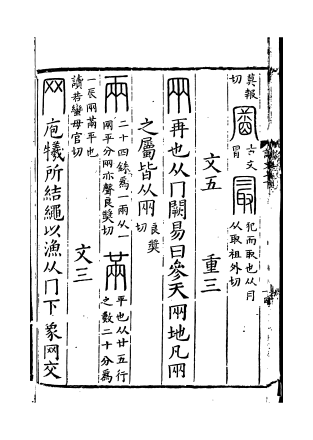 莫報切 𡇒 古文冒 冣 犯而取也从冃从取祖外切
文五 重三
㒳 再也从冂闕易曰參天㒳地凡㒳
之屬皆从㒳 良奬切
兩 二十四銖爲一兩从一㒳平分㒳亦聲良奬切 㒼 平也从廿五行之數二十分爲
一辰㒳㒼平也讀若蠻母官切
文三
网 庖犧所結繩以漁从冂下象网交